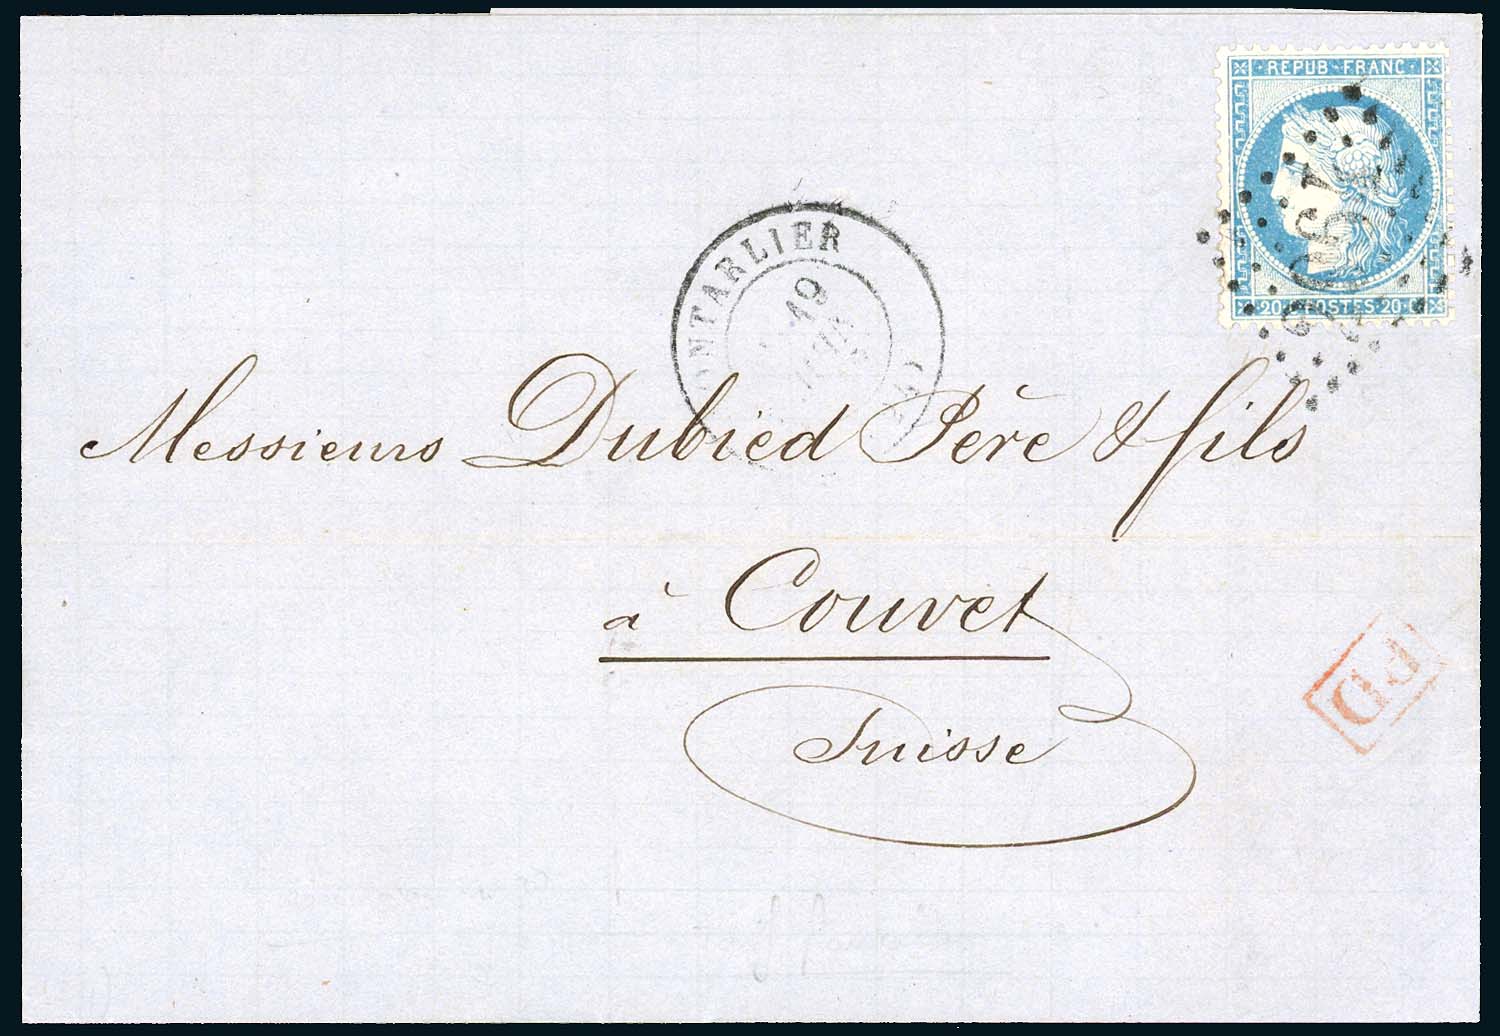 REPUB·FRANC
20·C·POSTES·20·C
PONTARLIER
19
Messieurs Dubied Père & fils
à Couvet
Suisse
PD